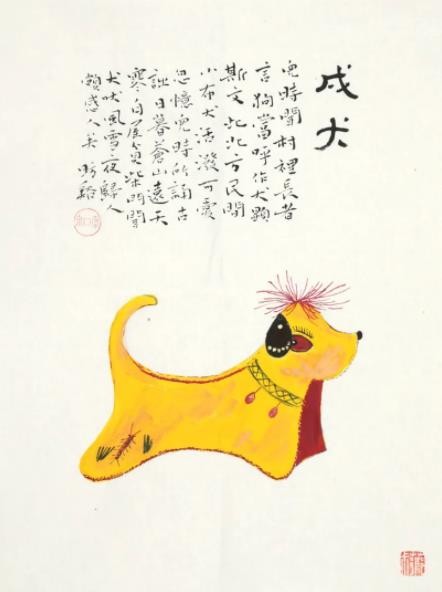 戌犬
兒時聞村裡長者
言狗當呼作犬顯
斯文此北方民間
小布犬活潑可愛
忽憶兒時所誦古
詩日暮蒼山遠天
寒白屋貧柴門聞
犬吠風雪夜歸人
頗感人矣